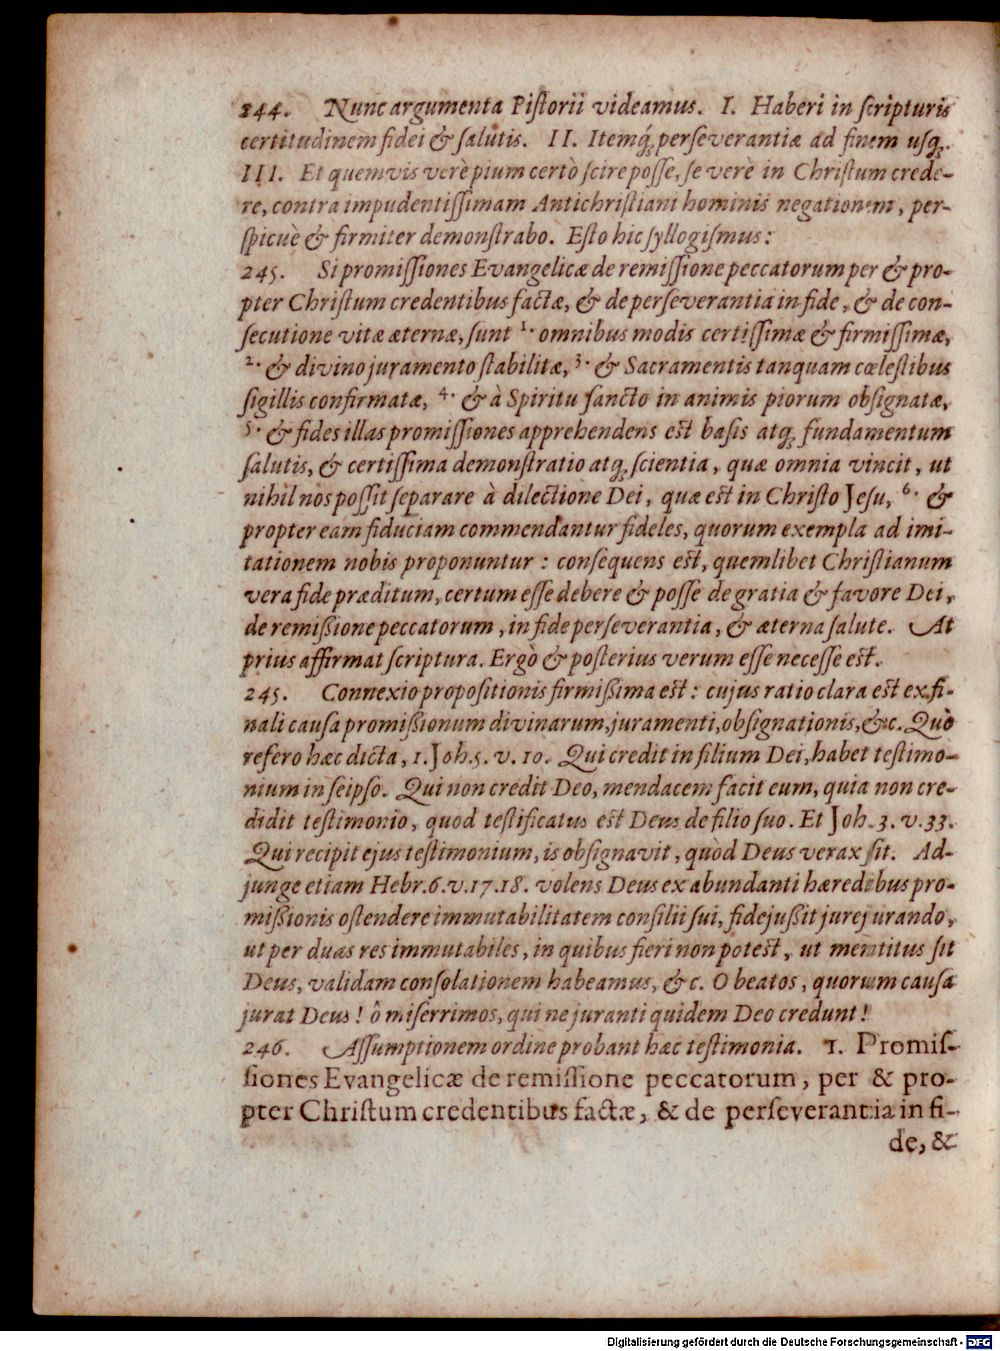 244. Nunc argumenta Piſtorii videamus. I. Haberi in ſcripturis
certitudinem fidei & ſalutis. II. Itemq́; perſeverantiæ ad finem uſq;.
III. Et quemvis verè pium certò ſcire poſſe, ſe verè in Chriſtum crede-
re, contra impudentiſſimam Antichriſtiani hominis negationem, per-
ſpicuè & firmiter demonſtrabo. Eſto hic ſyllogiſmus:
245. Si promiſſiones Evangelicæ de remiſſione peccatorum per & pro-
pter Chriſtum credentibus factæ, & de perſeverantia in fide, & de con-
ſecutione vitæ æternæ, ſunt 1. omnibus modis certiſſimæ & firmiſſimæ,
2. & divino juramento ſtabilitæ, 3. & Sacramentis tanquam cœleſtibus
ſigillis confirmatæ, 4. & à Spiritu ſancto in animis piorum obſignatæ,
5. & fides illas promiſſiones apprehendens est baſis atq; fundamentum
ſalutis, & certiſſima demonſtratio atq; ſcientia, quæ omnia vincit, ut
nihil nos poſſit ſeparare à dilectione Dei, quæ est in Chriſto Jeſu, 6. &
propter eam fiduciam commendantur fideles, quorum exempla ad imi-
tationem nobis proponuntur: conſequens est, quemlibet Chriſtianum
vera fide præditum, certum eſſe debere & poſſe de gratia & favore Dei,
de remißione peccatorum, in fide perſeverantia, & æterna ſalute. At
prius affirmat ſcriptura. Ergò & poſterius verum eſſe neceſſe est.
245. Connexio propoſitionis firmißima est: cujus ratio clara est ex fi-
nali cauſa promißionum divinarum, juramenti, obſignationis, &c. Quò
refero hæc dicta, 1. Joh. 5. v. 10. Qui credit in filium Dei, habet teſtimo-
nium in ſeipſo. Qui non credit Deo, mendacem facit eum, quia non cre-
didit teſtimonio, quod teſtificatus est Deus de filio ſuo. Et Joh. 3. v. 33.
Qui recipit ejus teſtimonium, is obſignavit, quòd Deus verax ſit. Ad-
junge etiam Hebr. 6. v. 17. 18. volens Deus ex abundanti hæredibus pro-
mißionis oſtendere immutabilitatem conſilii ſui, fidejußit jurejurando,
ut per duas res immutabiles, in quibus fieri non potest, ut mentitus ſit
Deus, validam conſolationem habeamus, &c. O beatos, quorum cauſa
jurat Deus! ô miſerrimos, qui ne juranti quidem Deo credunt!
246. Aſſumptionem ordine probant hæc teſtimonia. 1. Promiſ-
ſiones Evangelicæ de remiſſione peccatorum, per & pro-
pter Chriſtum credentibus factæ, & de perſeverantia in fi-
de, &
Digitalisierung gefördert durch die Deutsche Forschungsgemeinschaft - DFG